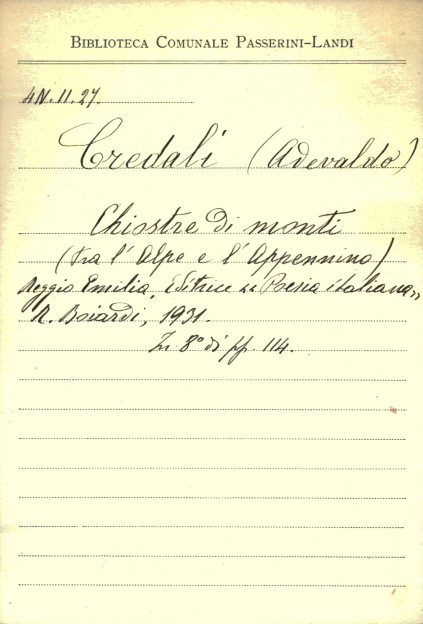 BIBLIOTECA COMUNALE PASSERINI-LANDI
4N.11.27.
Credali (Adevaldo)
Chiostre di monti
(tra l'Alpe e l'Appennino)
Reggio Emilia, Editrice "Poesia italiana"
M. Boiardi, 1931.
In 8° di pp. 114.